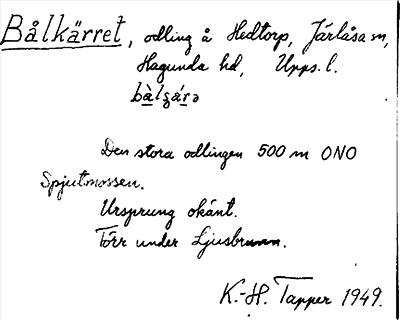 Bålkärret, odling å Hedtorp, Järlåsa sn,
Hagunda hd, Upps. l.
bàlʒárə
Den stora odlingen 500 m ONO
Spjutmossen.
Ursprung okänt.
Förr under Ljusbrunn.
K.-H. Tapper 1949.